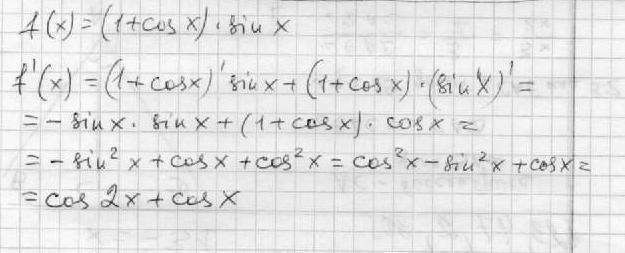 f(x) = (1+cos x) · sin x
f'(x) = (1+cos x)' sin x + (1+cos x) · (sin x)' =
= - sin x · sin x + (1+cos x) · cos x =
= - sin² x + cos x + cos² x = cos² x - sin² x + cos x =
= cos 2x + cos x